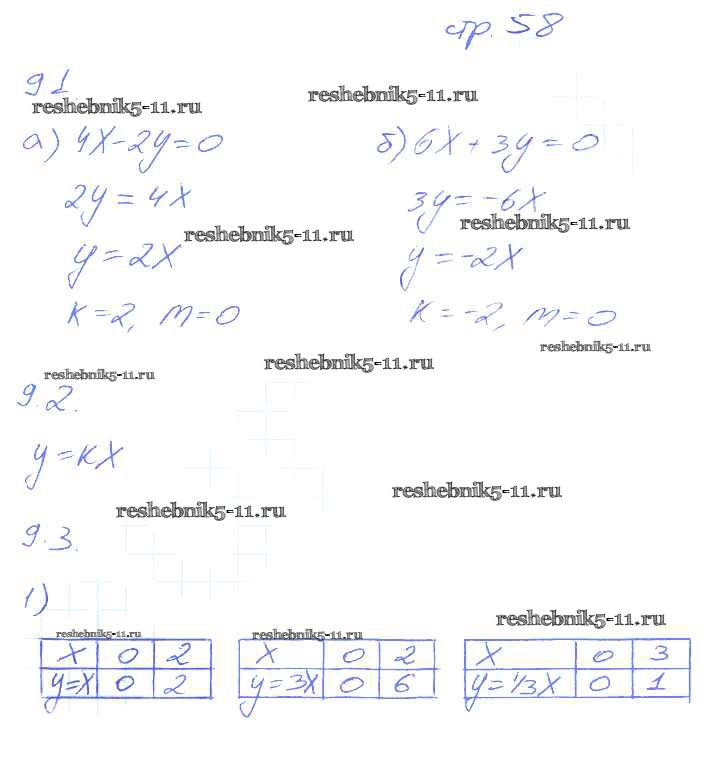 стр. 58
9.1
reshebnik5-11.ru reshebnik5-11.ru
а) 4x-2y=0 б) 6x+3y=0
2y=4x 3y=-6x
reshebnik5-11.ru reshebnik5-11.ru
y=2x y=-2x
k=2, m=0 k=-2, m=0
reshebnik5-11.ru
reshebnik5-11.ru reshebnik5-11.ru
9.2.
y=kx
reshebnik5-11.ru
reshebnik5-11.ru
9.3.
1)
reshebnik5-11.ru reshebnik5-11.ru reshebnik5-11.ru
x 0 2 x 0 2 x 0 3
y=x 0 2 y=3x 0 6 y=1/3x 0 1